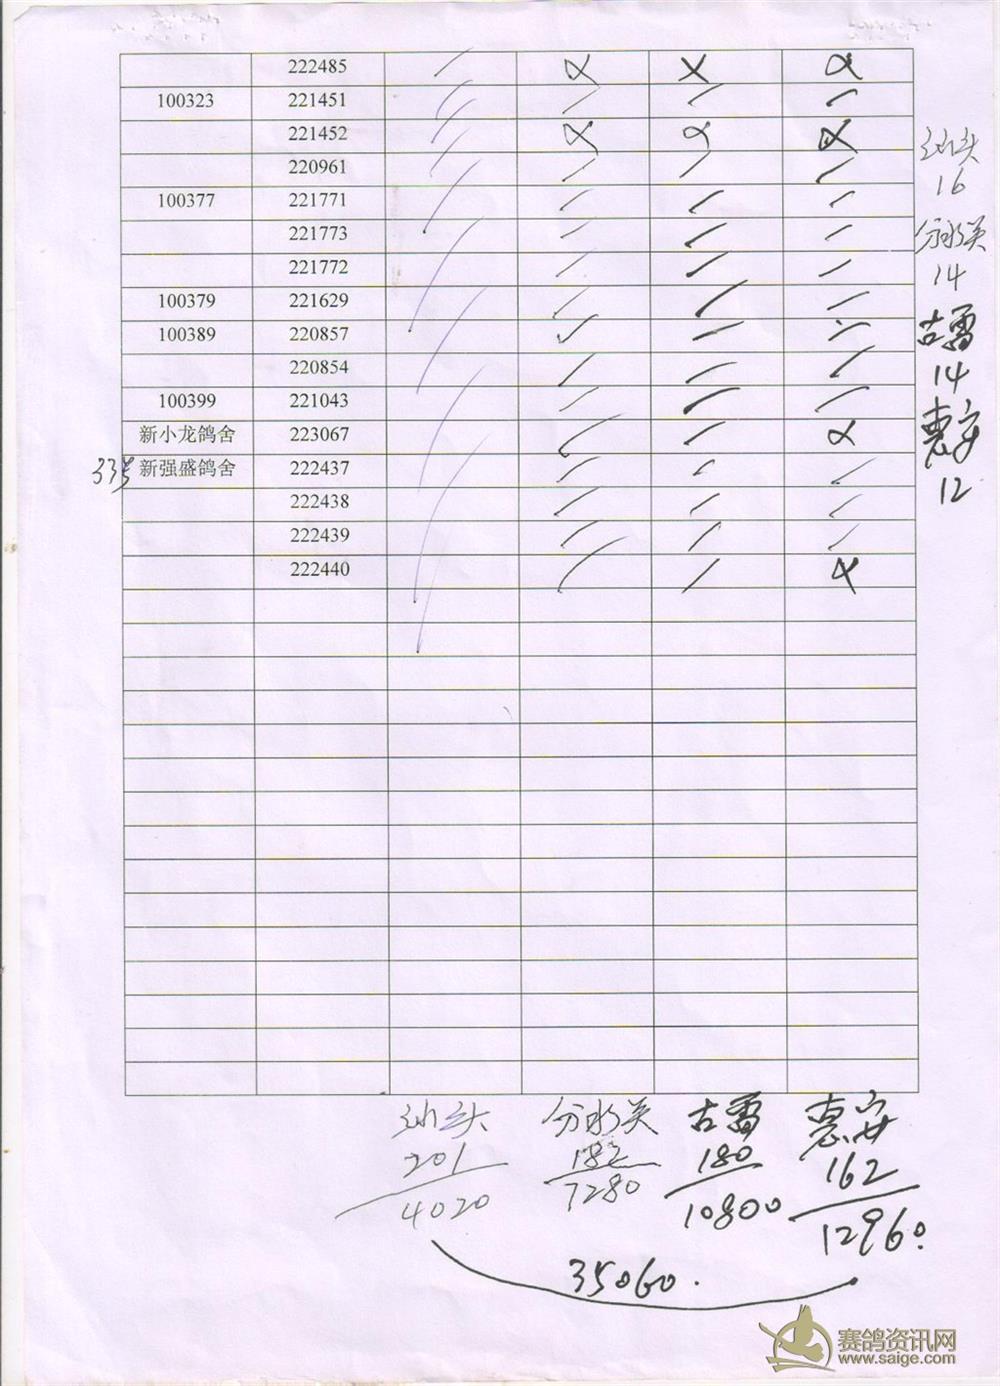 222485 / × × ×
100323 221451 / / / /
221452 / × × ×
220961 / / / /
100377 221771 / / / /
221773 / / / /
221772 / / / /
100379 221629 / / / /
100389 220857 / / / /
220854 / / / /
100399 221043 / / / /
新小龙鸽舍 223067 / / / ×
335 新强盛鸽舍 222437 / / / /
222438 / / / /
222439 / / / /
222440 / / / ×
汕头
16
分水关
14
古雷
14
惠安
12
汕头 分水关 古雷 惠安
201 182 180 162
4020 7280 10800 12960.
35060.
赛鸽资讯网
www.saige.com